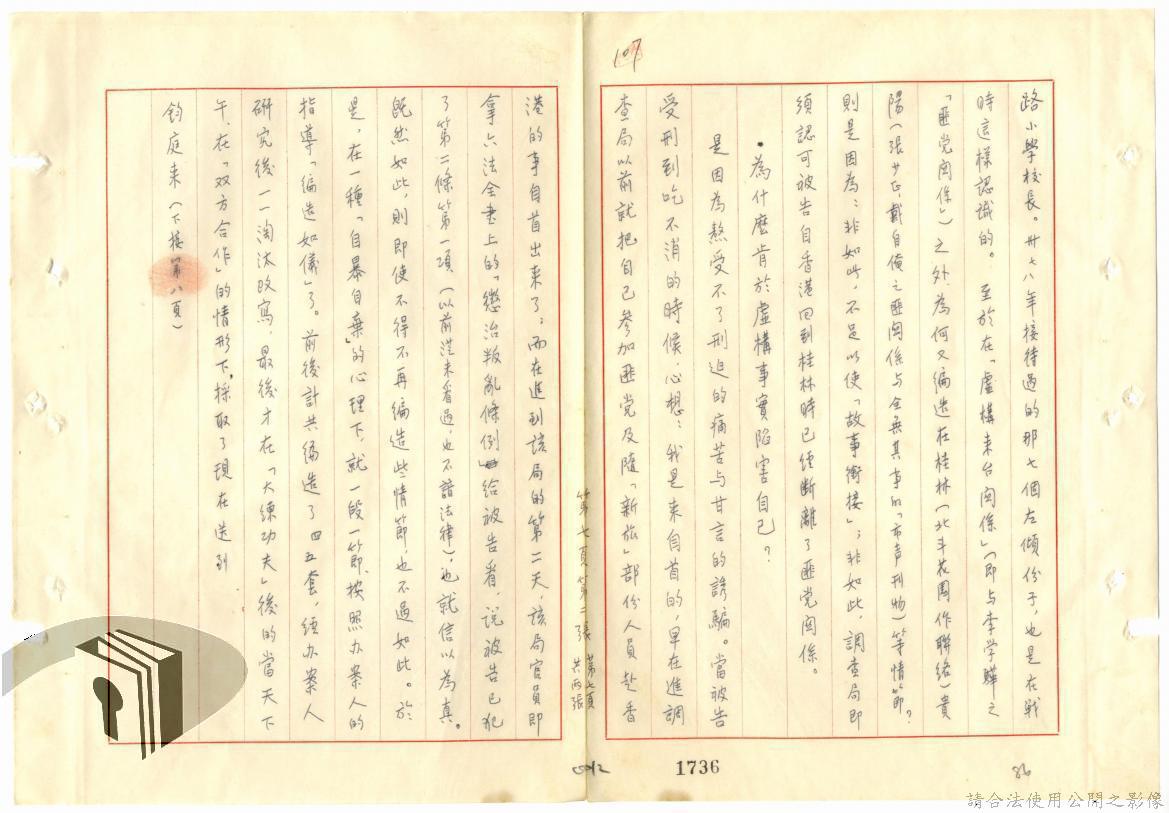 107
路小學校長。卅七八年接待過的那七個左傾份子，也是在戰
時這樣認識的。至於在「虛構来台関係」（即与李学驊之
「匪党関係」）之外，為何又编造在桂林（北斗花園作聯絡）貴
陽（張少正，戴自俺之匪関係与全無其事的「布声刊物）等情節？
則是因為：非如此，不足以使「故事銜接」；非如此，調查局即
須認可被告自香港回到桂林時已經断離了匪党関係。
為什麼肯於虛構事實陷害自己？
是因為熬受不了刑迫的痛苦与甘言的誘騙。當被告
受刑到吃不消的時候，心想：我是来自首的，早在進調
查局以前就把自己参加匪党及隨「新旅」部份人員赴香
第七頁第二張
第七頁
共两張
港的事自首出来了；而在進到該局的第二天，該局官員即
拿六法全书上的「懲治叛亂條例」給被告看，说被告已犯
了第二條第一項（以前從未看過，也不諳法律），也就信以為真。
既然如此，則即使不得不再编造些情節，也不過如此。於
是，在一種「自暴自棄」的心理下，就一段一節、按照办案人的
指導「编造如儀」了。前後計共编造了四五套，經办案人
研究後一一淘汰改寫，最後才在「大練功夫」後的當天下
午、在「双方合作」的情形下，採取了現在送到
鈞庭来（下接第八頁）
1736
86
請合法使用公開之影像